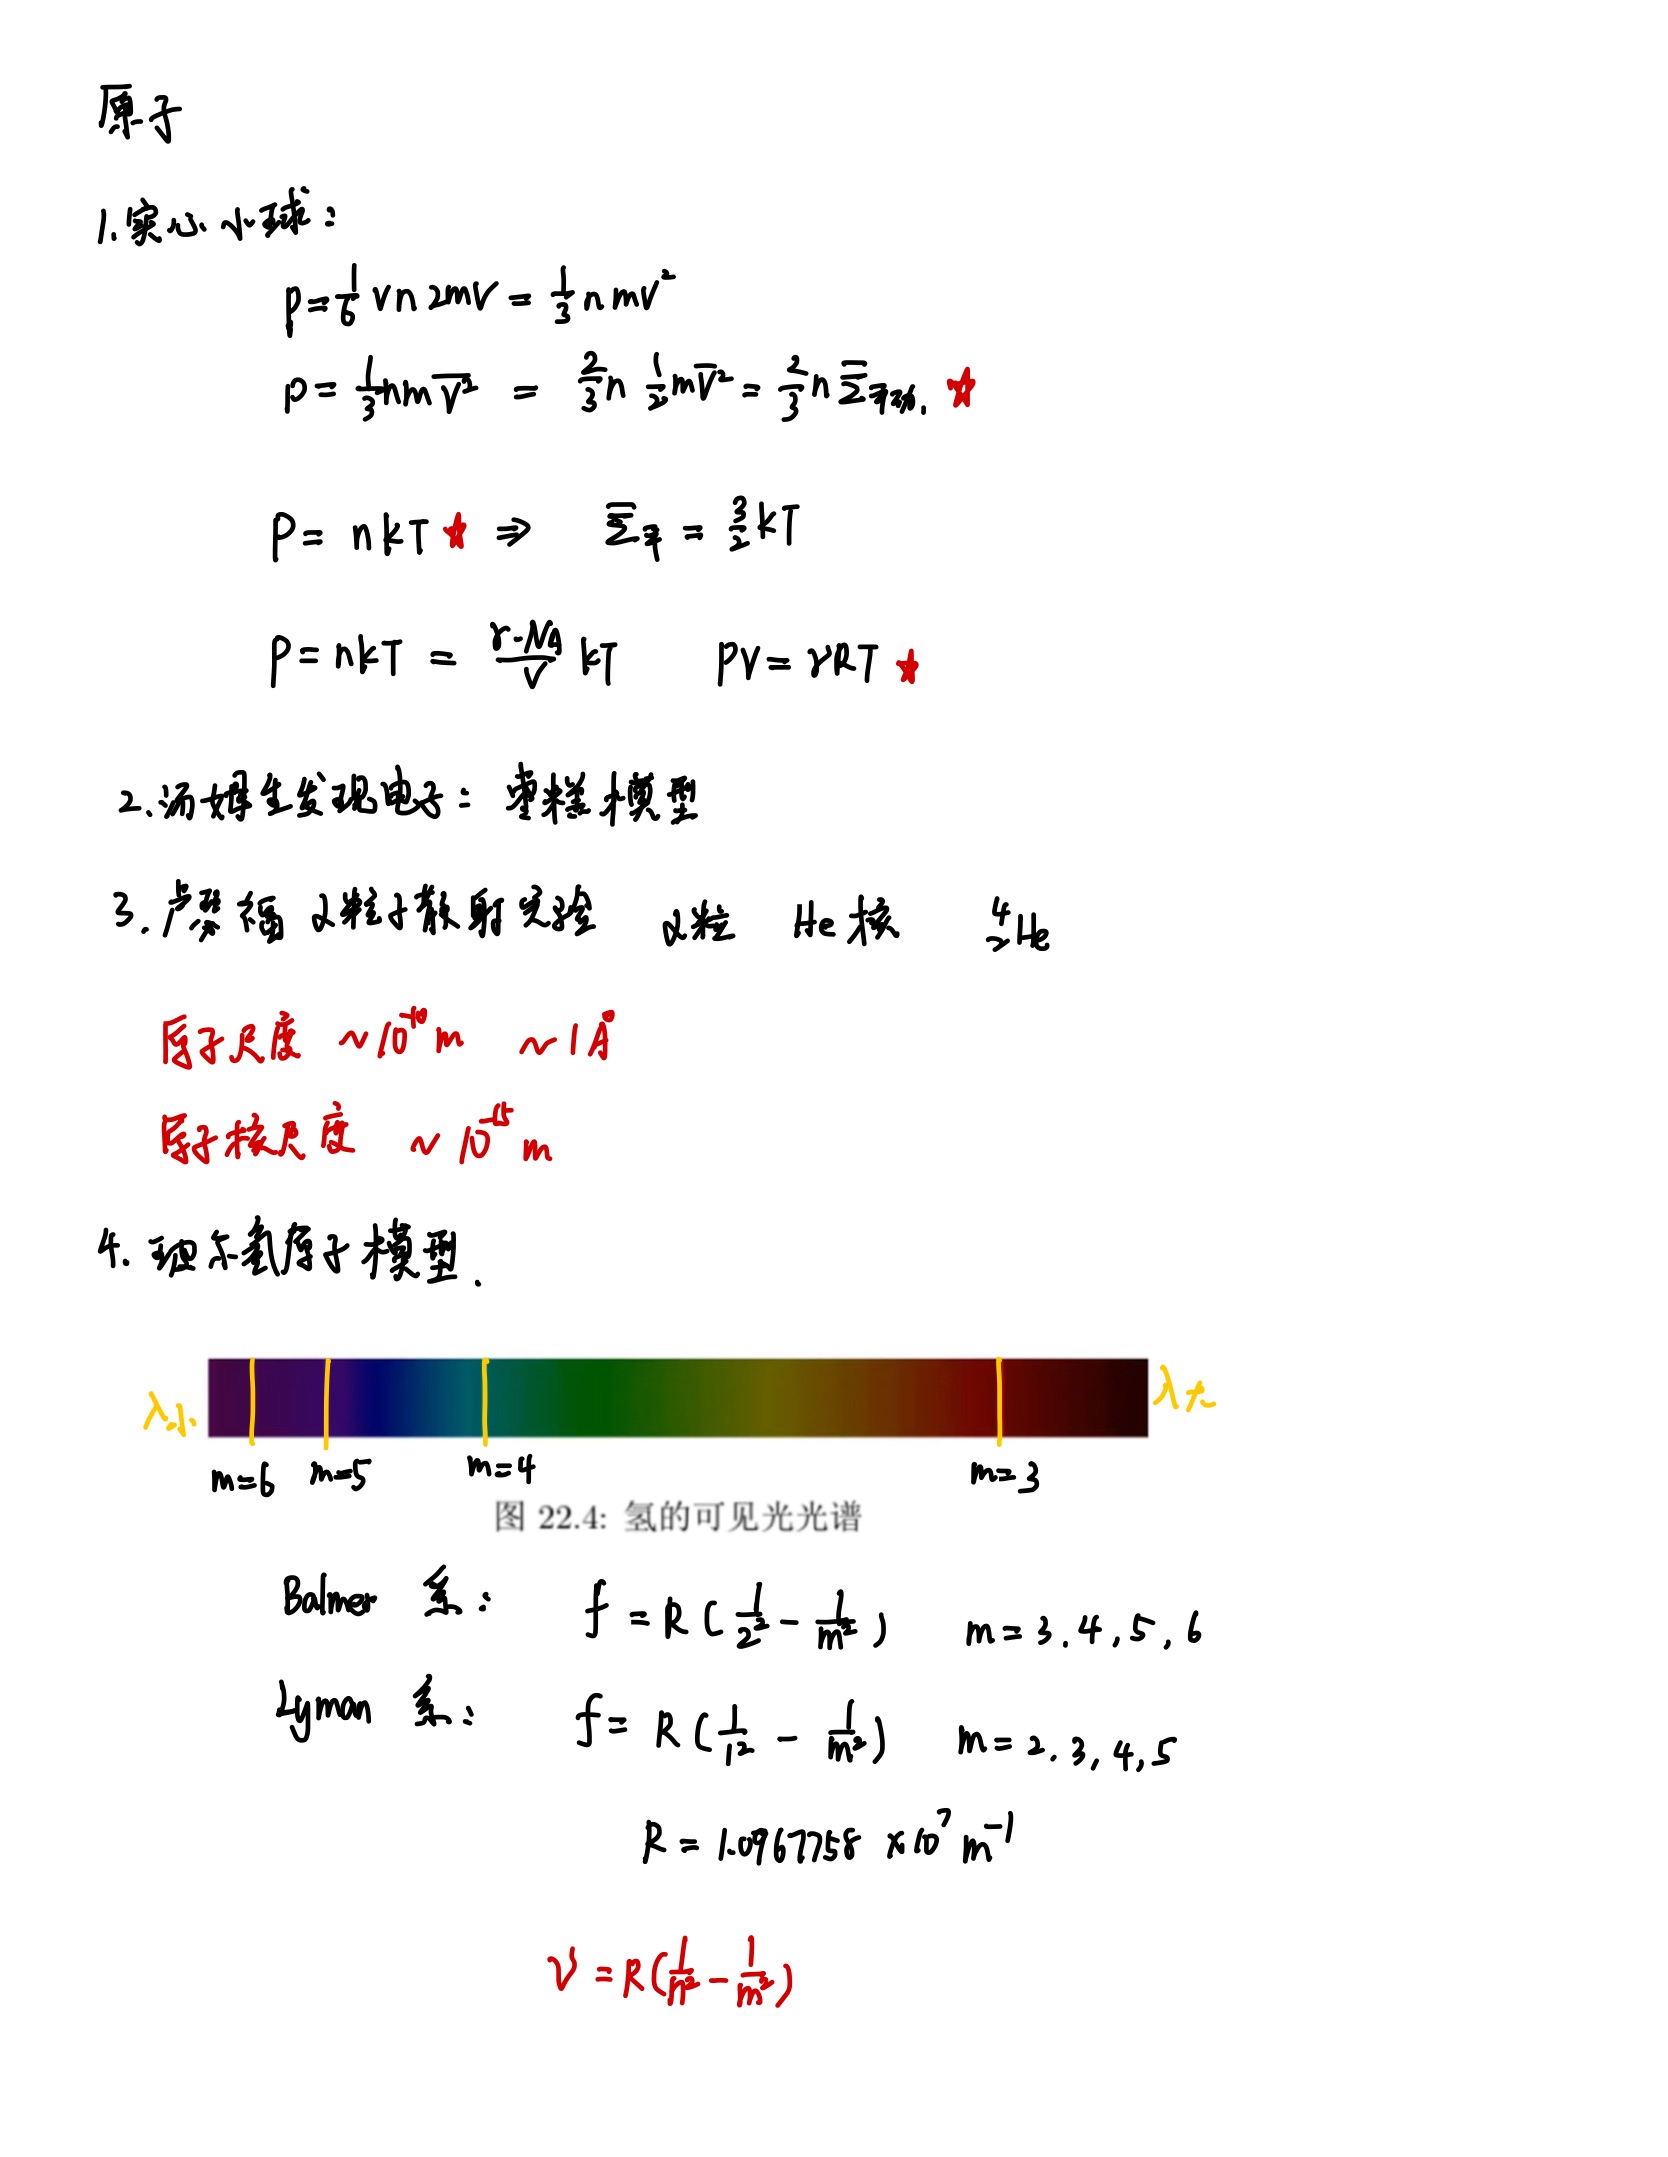 原子
1.实心小球：
p=1/6 vn2mv = 1/3 nmv²
p= 1/3 nm\overline{v²} = 2/3 n 1/2 m\overline{v}² = 2/3 n \overline{Σ}平动. ☆
P= nkT ☆ ⇒ \overline{Σ}平 = 3/2 kT
P= nkT = γ·NA/V kT PV= γRT ☆
2.汤姆生发现电子：枣糕模型
3.卢瑟福 α粒子散射实验 α粒 He核 ⁴₂He
原子尺度 ~10⁻¹⁰m ~1Å
原子核尺度 ~10⁻¹⁵m
4. 玻尔氢原子模型.
λ小 λ大
m=6 m=5 m=4 m=3
图 22.4: 氢的可见光光谱
Balmer 系： f = R(1/2² - 1/m²) m=3.4,5,6
Lyman 系： f= R(1/1² - 1/m²) m=2.3,4,5
R = 1.0967758 ×10⁷ m⁻¹
ν =R(1/n² - 1/m²)